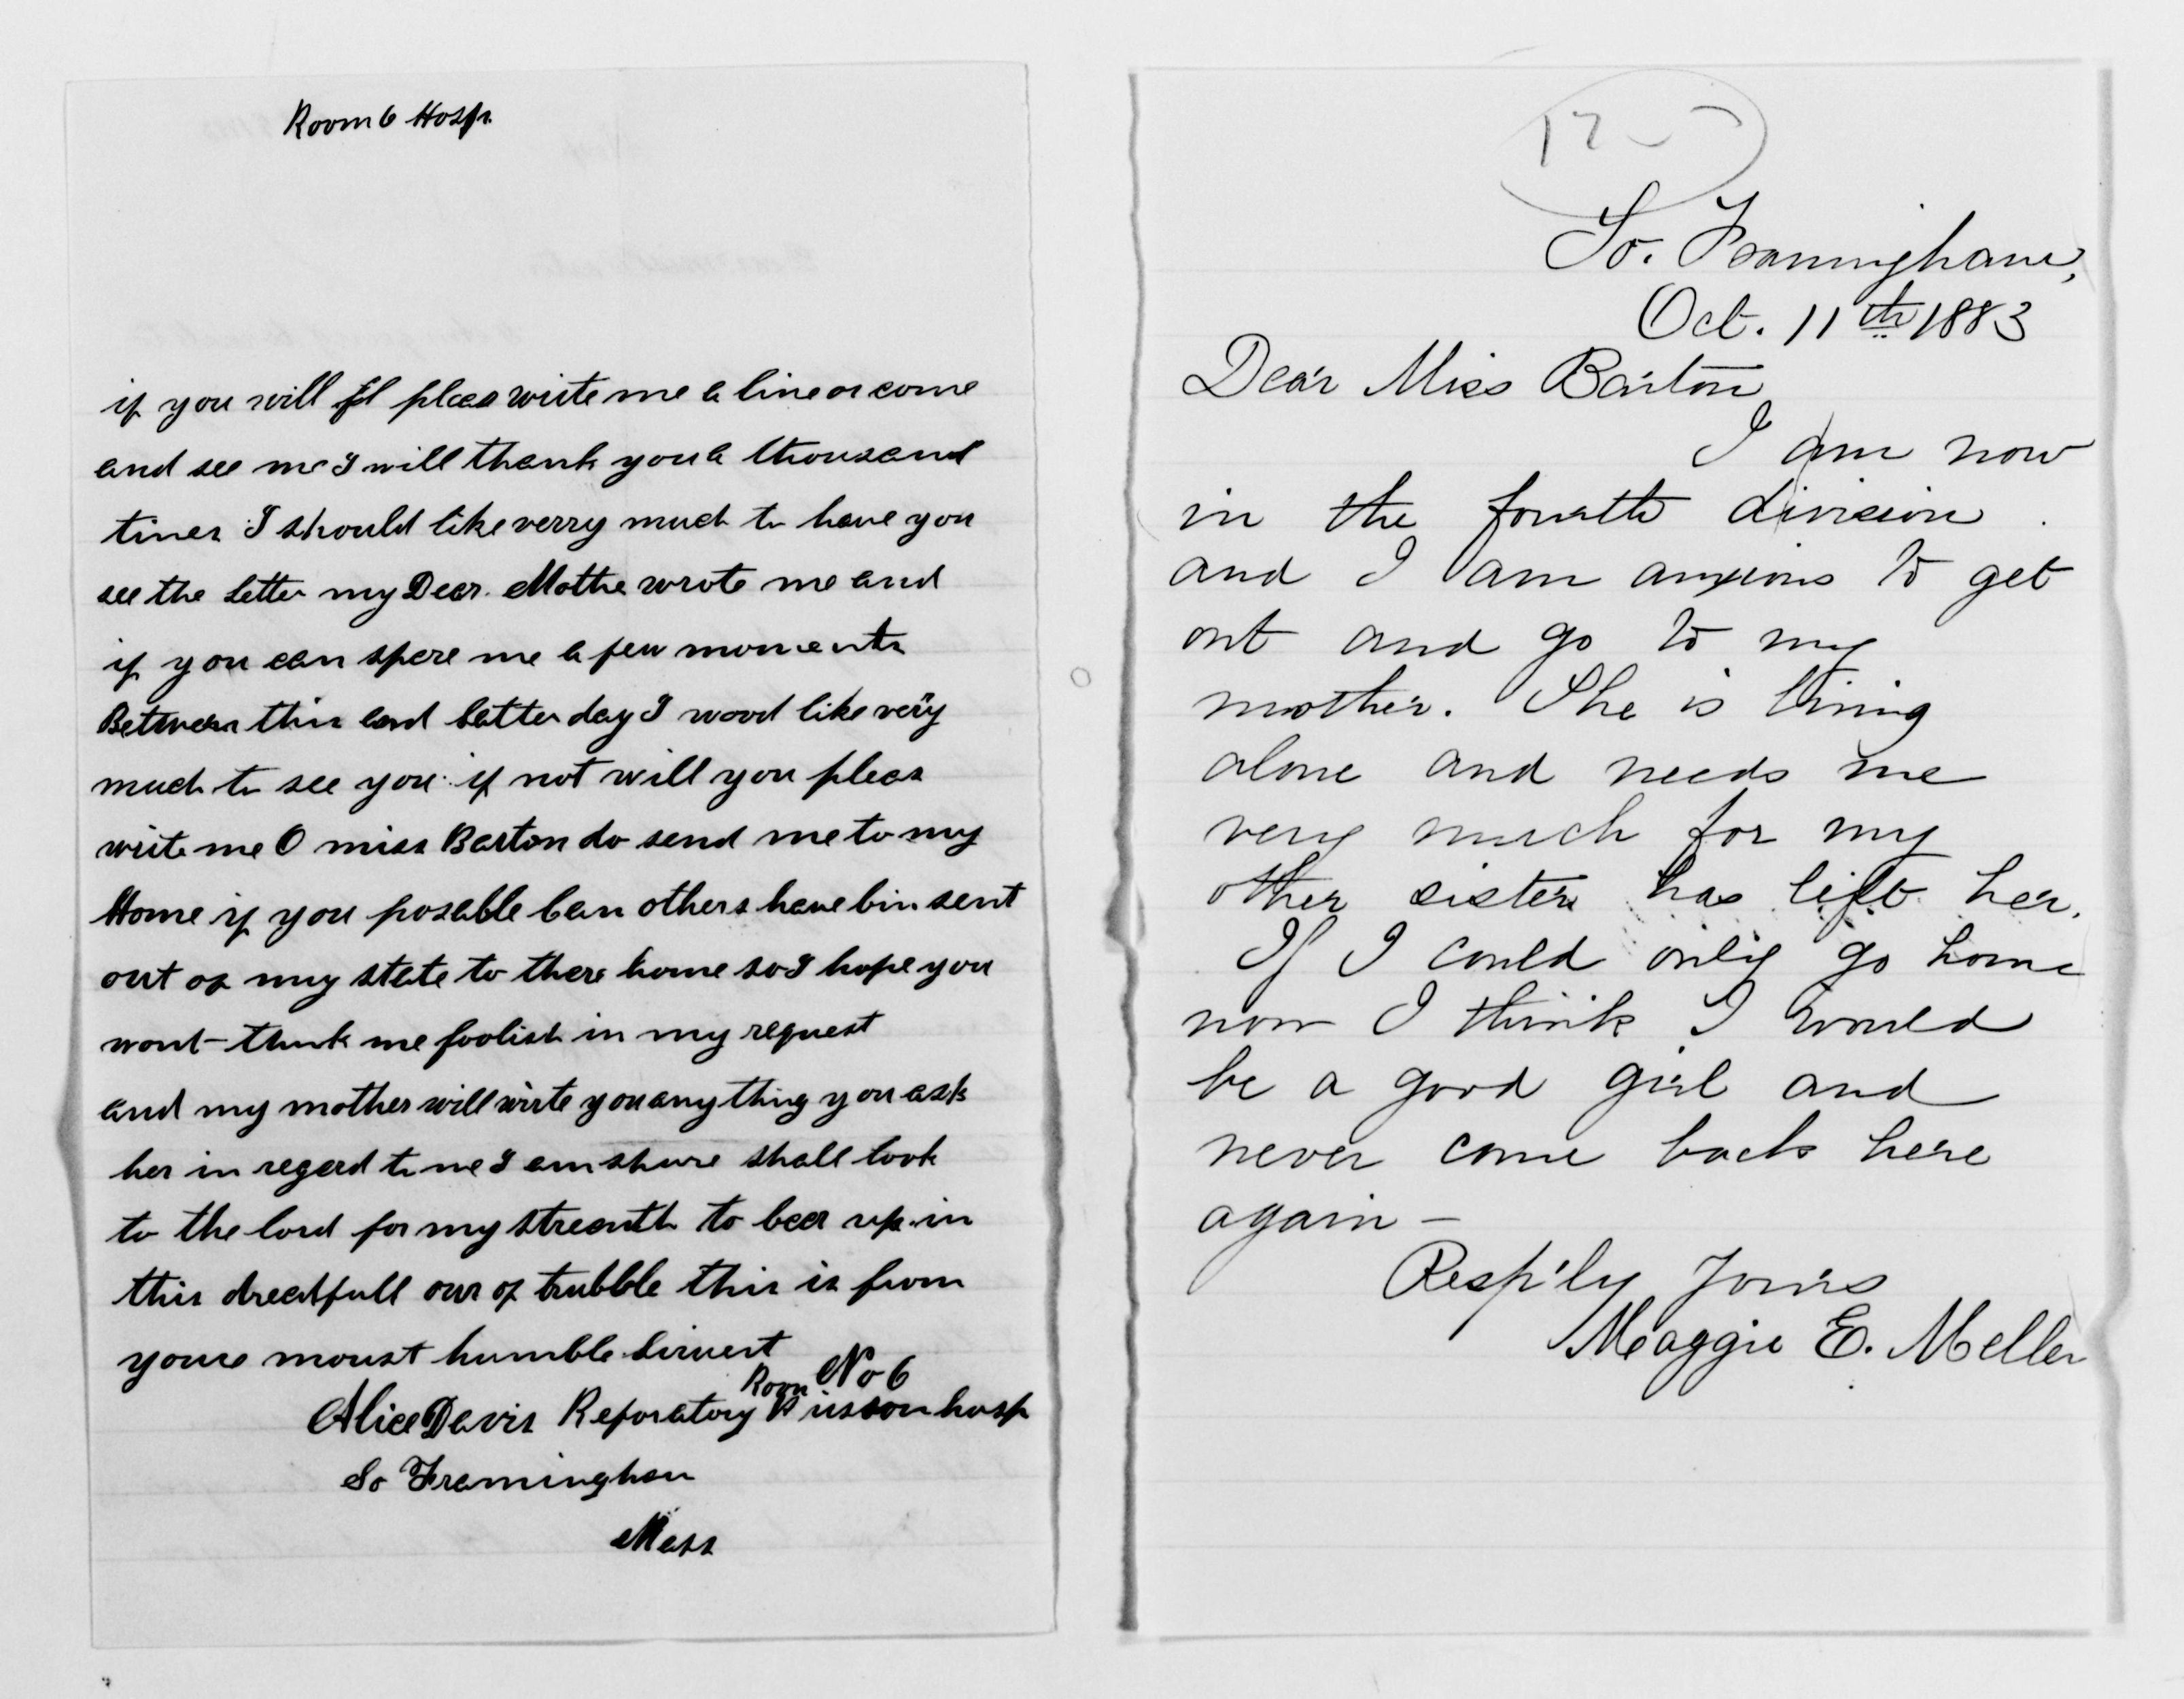 Room 6 Hosp.
if you will pleas write me a line or come
and see me I will thank you a thousand
times I should like verry much to have you
see the letter my Dear Mothe wrote me and
if you can spare me a few moments
Between this and latter day I wood like very
much to see you if not will you pleas
write me O miss Barton do send me to my
Home if you posable can others have bin sent
out of my state to there home so I hope you
wont think me foolish in my request
and my mother will write you anything you ask
her in regard to me I am shure shall look
to the lord for my streanth to bear up in
this dreadfull our of trubble this is from
youre moust humble sirvent
Room No 6
Alice Davis Reforatory Prisson hosp
So Framingham
Mass
So. Framingham,
Oct. 11th 1883
Dear Miss Barton
I am now
in the fourth division.
and I am anxious to get
out and go to my
mother. She is living
alone and needs me
very much for my
other sister has left her.
If I could only go home
now I think I would
be a good girl and
never come back here
again —
Resp'ly Yours
Maggie E. Meller